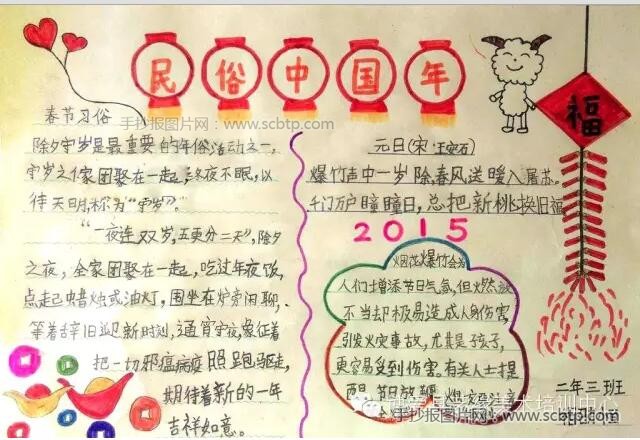 民俗中国年
春节习俗
手抄报图片网：www.scbtp.com
除夕守岁是最重要的年俗活动之一，
守岁之俗
家团聚在一起，终夜不眠，以
待天明，称为“守岁”。
“一夜连双岁，五更分二天”，除夕
之夜，全家团聚在一起，吃过年夜饭，
点起蜡烛或油灯，围坐在炉旁闲聊，
等着辞旧迎新时刻，通宵守夜，象征着
把一切邪瘟病疫照跑驱走，
期待着新的一年
吉祥如意。
元日(宋·王安石)
爆竹声中一岁除，春风送暖入屠苏。
千门万户瞳瞳日，总把新桃换旧福
2015
烟花爆竹会为
人们增添节日气氛，但火燃放
不当却极易造成人身伤害，
引发火灾事故，尤其是孩子，
更容易受到伤害，有关人士提
醒，节日放鞭炮
福
二年三班
手抄报图片网：www.scbtp.com